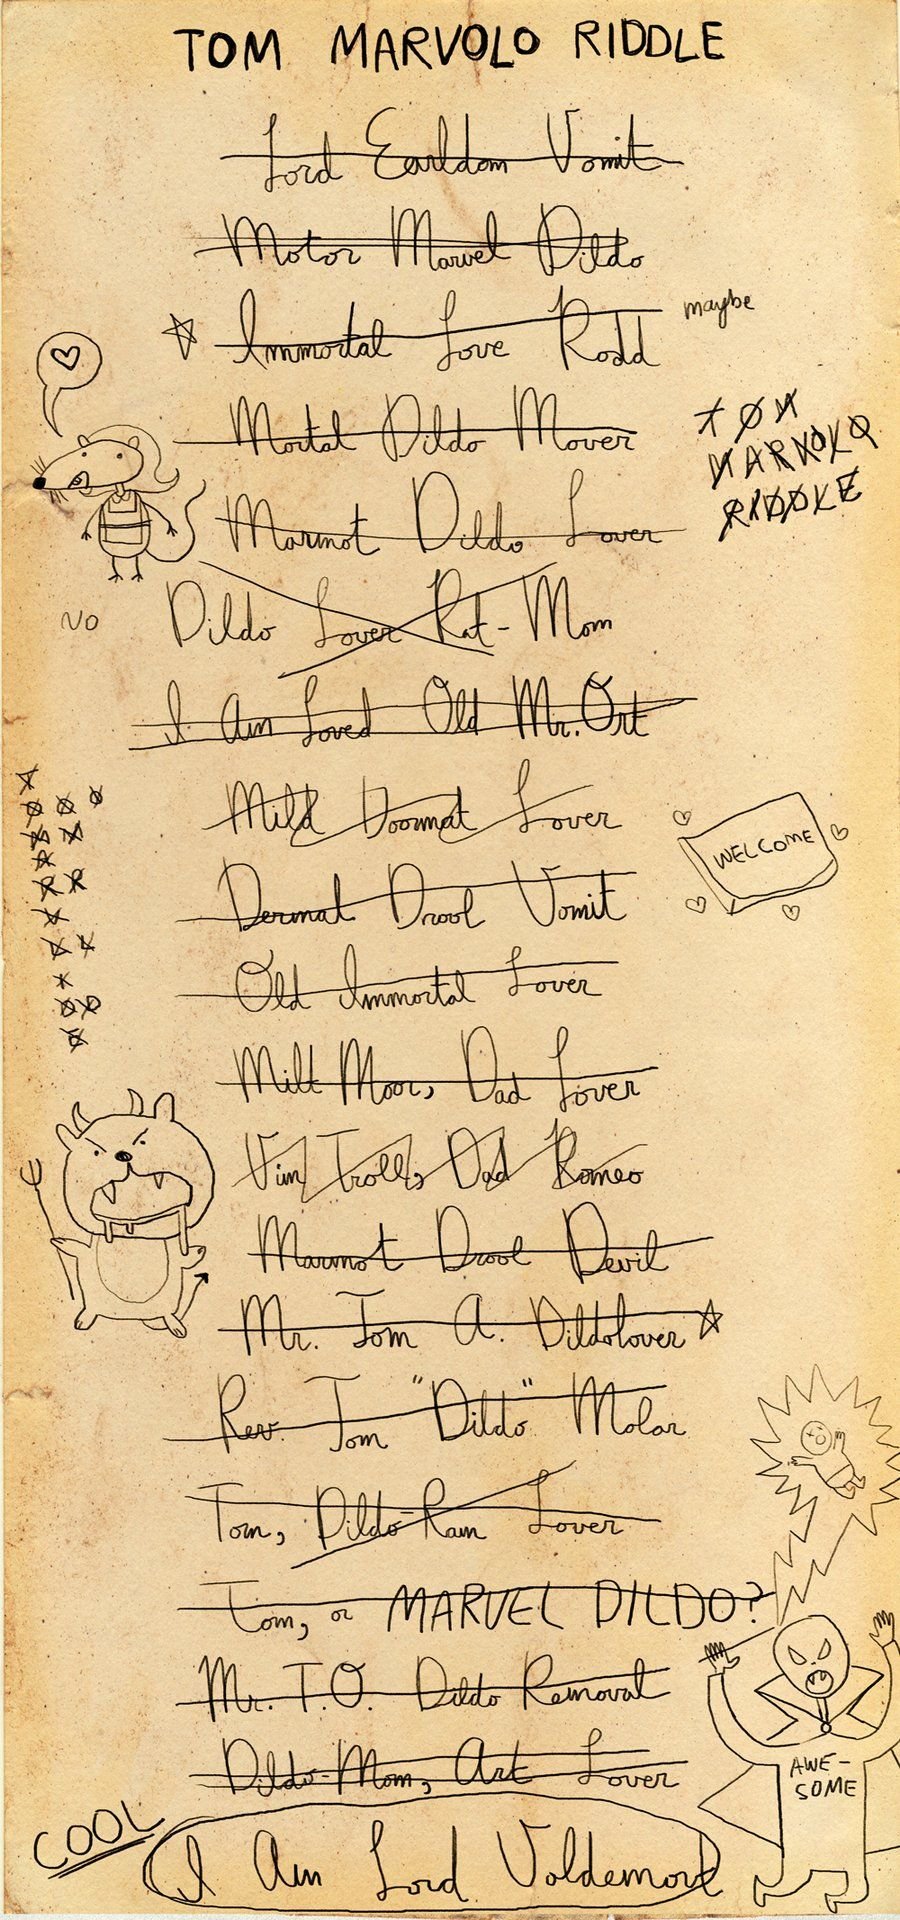 TOM MARVOLO RIDDLE
Lord Earldom Vomit
Motor Marvel Dildo
Immortal Love Rodd
maybe
Mortal Dildo Mover
TOM
MARVOLO
RIDDLE
Marmot Dildo Lover
Dildo Lover Rat-Mom
NO
I Am Loved Old Mr. Ort
Mild Doormat Lover
WELCOME
Dermal Drool Vomit
Old Immortal Lover
Milt Moor, Dad Lover
Vim Troll, Dad Romeo
Marmot Drool Devil
Mr. Tom A. Dildolover
Rev. Tom "Dildo" Molar
Tom, Dildo-Ram Lover
Tom, or MARVEL DILDO?
Mr. T.O. Dildo Removal
Dildo-Mom, Art Lover
AWE-
SOME
COOL
I Am Lord Voldemort